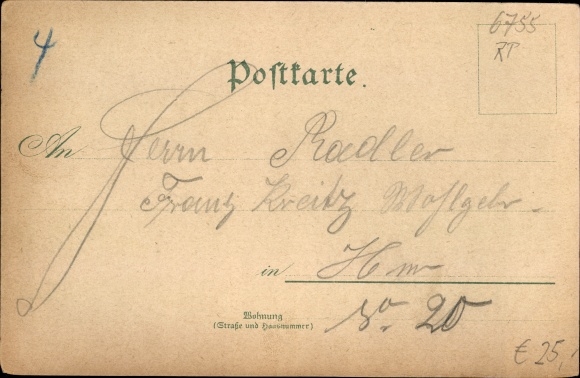 4
6755
RP
Postkarte.
An Herrn Radler
Franz Kreitz Wohlgebr.
in
Wohnung
(Straße und Hausnummer)
No. 20
€ 25,